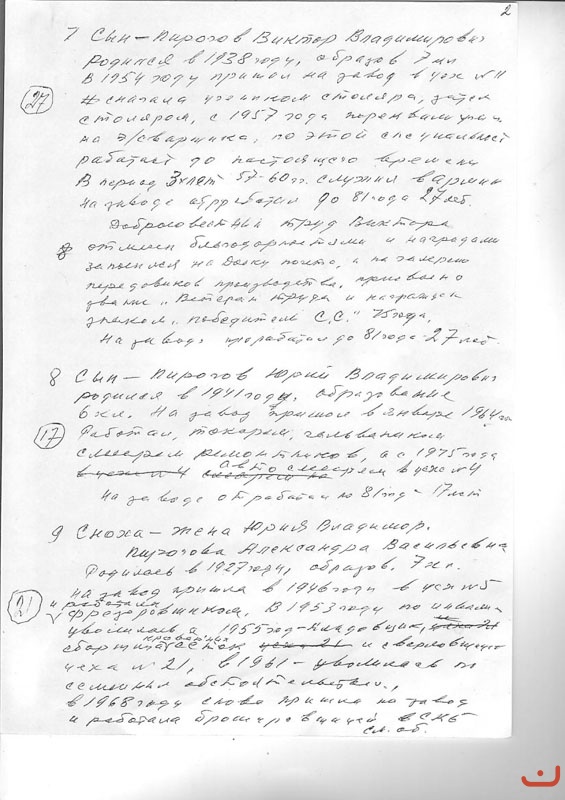 2
7 Сын – Пирогов Виктор Владимирович
родился в 1938 году, образов. 7 кл
В 1954 году пришел на завод в цех № 11
сначала учеником столяра, затем
27
столяром, с 1957 года
на э/сварщика, по этой специальност
работает до настоящего времени
В период 3х лет 57-60 гг. служил в армии
на заводе отработал до 81 года 27 лет.
Добросовестный труд Виктора
отмечен благодарностями и наградами
на Доску почета, а на галерею
передовиков производства, присвоено
звание „Ветеран труда и награжден
знаком „Победитель С.С." года,
На заводе проработал до 81 года - 27 лет.
8 Сын – Пирогов Юрий Владимирович
родился в 1941 году, образование
6 кл. На завод пришел в январе 1964 го
17
Работал, токарем, гальваником
слесарем ремонтником, а с 1975 года
в цехе № 4 авто слесарем в цехе № 4
На заводе отработал до 81 год – 17 лет
9 Сноха – жена Юрия Владимир.
Пирогова Александра Васильевна
Родилась в 1927 году, образов. 7 кл.
на завод пришла в 1946 году в цех № 5
21
и работала
фрезеровщиком, В 1953 году по
уволилась, а 1955 год – кладовщик,
сборщик кроватных сеток и сверловщиц
цеха № 21, в 1961 – уволилась по
семейным обстоятельствам.,
в 1968 году снова пришла на завод
и работала в СКБ
см. об.